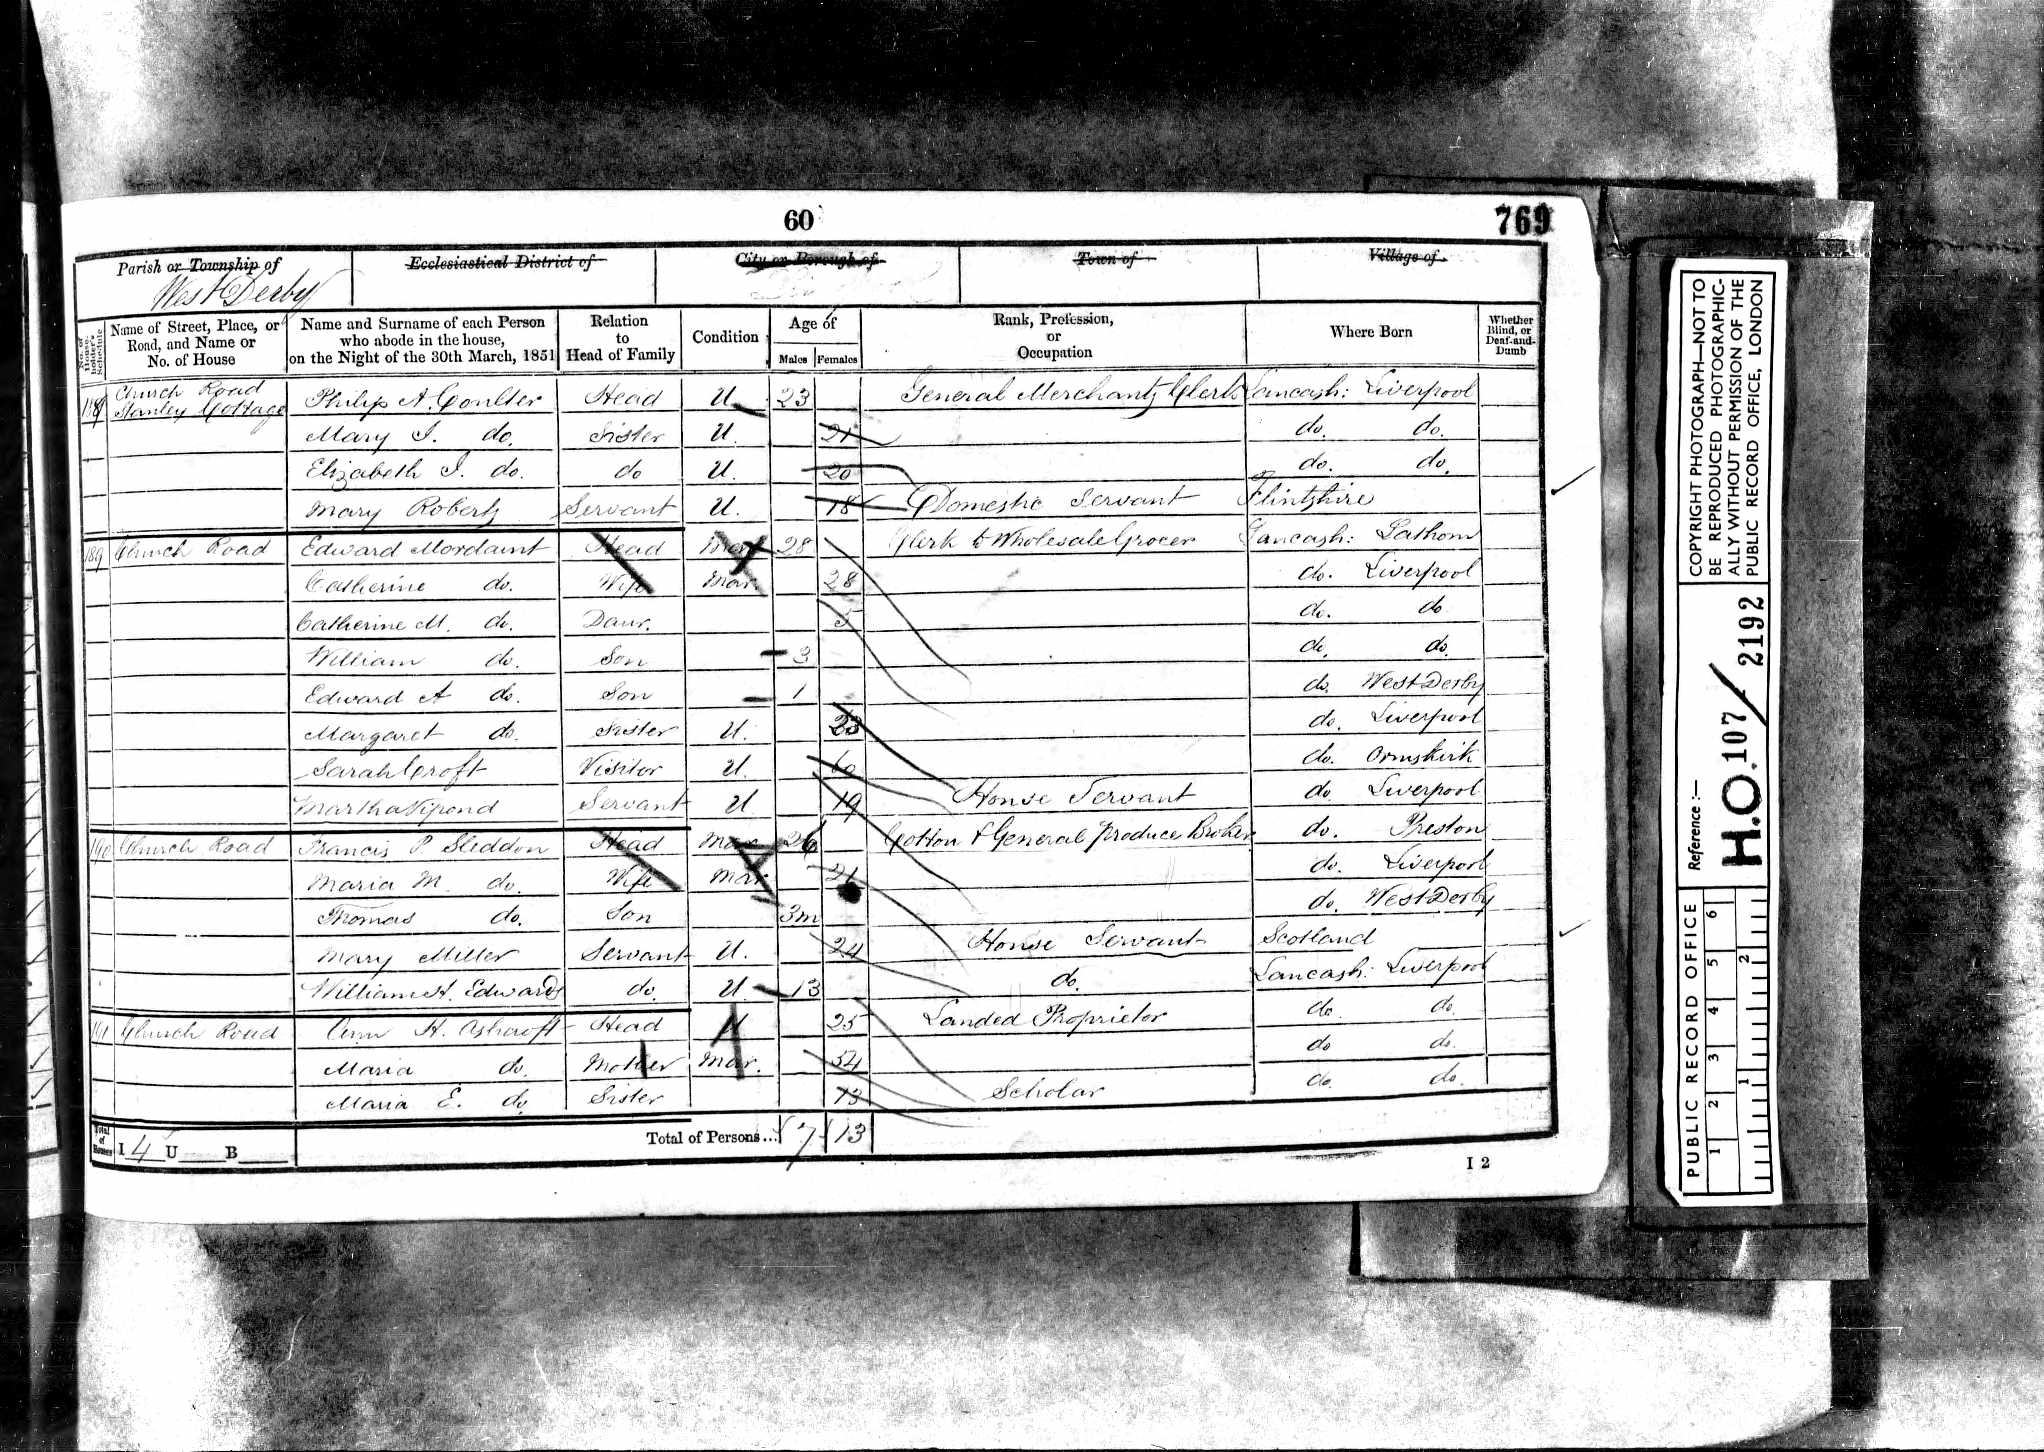 60
769
Parish or Township of
West Derby
Ecclesiastical District of
City or Borough of
Town of
Village of
No. of House-holder's Schedule
Name of Street, Place, or Road, and Name or No. of House
Name and Surname of each Person who abode in the house, on the Night of the 30th March, 1851
Relation to Head of Family
Condition
Age of
Males
Females
Rank, Profession, or Occupation
Where Born
Whether Blind, or Deaf-and-Dumb
Church Road
Stanley Cottage Philip A. Coulter Head U 23 General Merchants Clerk Lancash: Liverpool
Mary I. do. Sister U. 21 do. do.
Elizabeth I. do. do U. 20 do. do.
Mary Roberts Servant U. 18 Domestic Servant Flintshire
189 Church Road Edward Mordaunt Head Mar 28 Clerk to Wholesale Grocer Lancash: Lathom
Catherine do. Wife Mar 28 do. Liverpool
Catherine M. do. Daur. 5 do. do
William do. Son 3 do. do.
Edward A do. Son 1 do. West Derby
Margaret do. Sister U. 23 do. Liverpool
Sarah Croft Visitor U. 60 do. Ormskirk
Martha Vipond Servant U 19 House Servant do. Liverpool
190 Church Road Francis P. Sleddon Head Mar 26 Cotton & General Produce Broker do. Preston
Maria M. do. Wife Mar 21 do. Liverpool
Thomas do. Son 3m do. West Derby
Mary Miller Servant U. 24 House Servant Scotland
William H. Edwards do. U 13 do. Lancash: Liverpool
191 Church Road Ann H. Ashcroft Head U 25 Landed Proprietor do. do.
Maria do. Mother Mar. 54 do do.
Maria E. do. Sister 13 Scholar do. do.
Total of Houses I 4 U B Total of Persons... 7 13
I 2
COPYRIGHT PHOTOGRAPH—NOT TO
BE REPRODUCED PHOTOGRAPHIC-
ALLY WITHOUT PERMISSION OF THE
PUBLIC RECORD OFFICE, LONDON
Reference :—
H.O. 107 / 2192
PUBLIC RECORD OFFICE
1 2 3 4 5 6
1 2